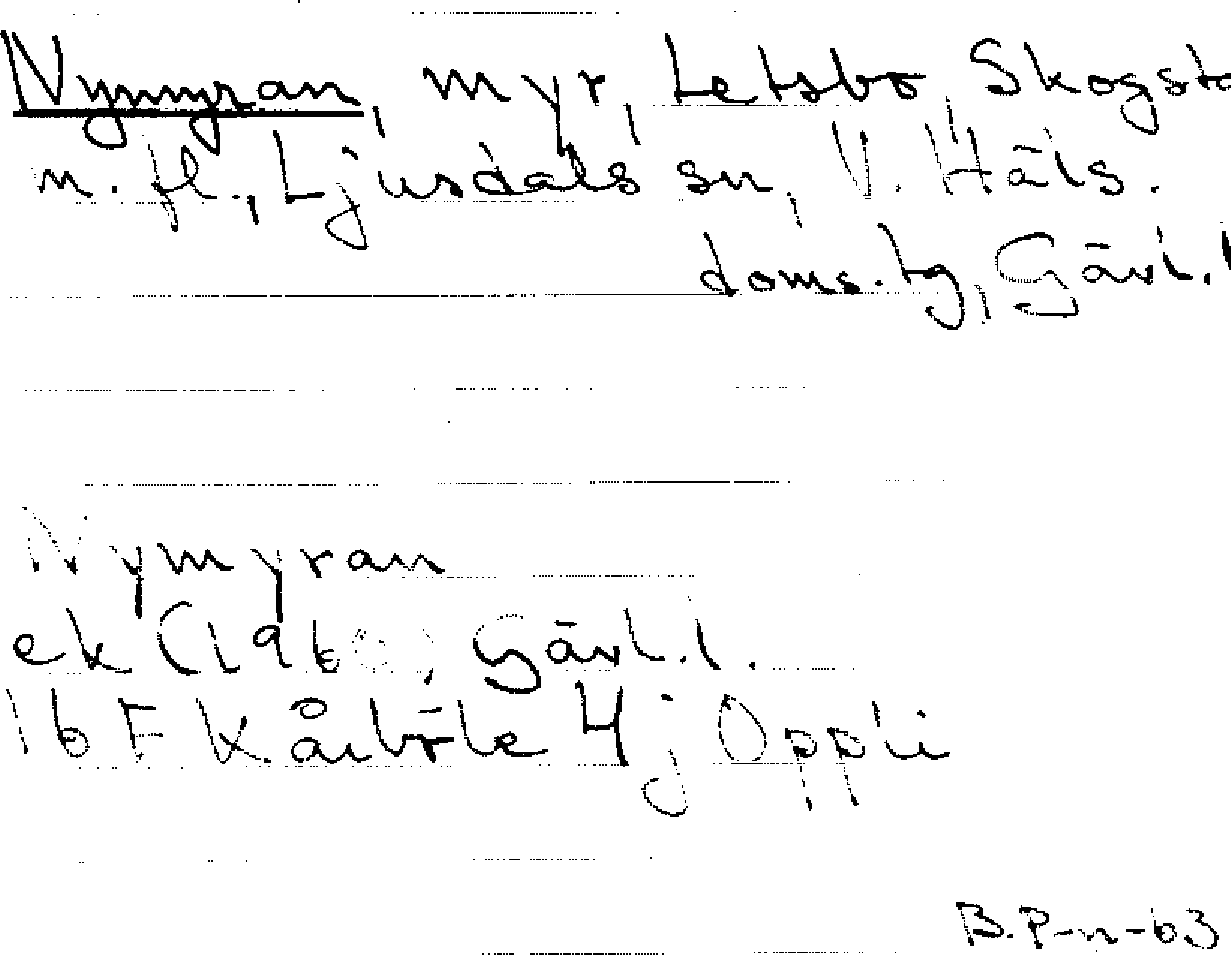 Nymyran, myr, Letsbo, Skogsta
m. fl., Ljusdals sn, V. Häls.
doms.tg, Gävl.l
Nymyran
ek (1960), Gävl.l.
16 F Kårböle 4 j Oppli
B.P-n-63